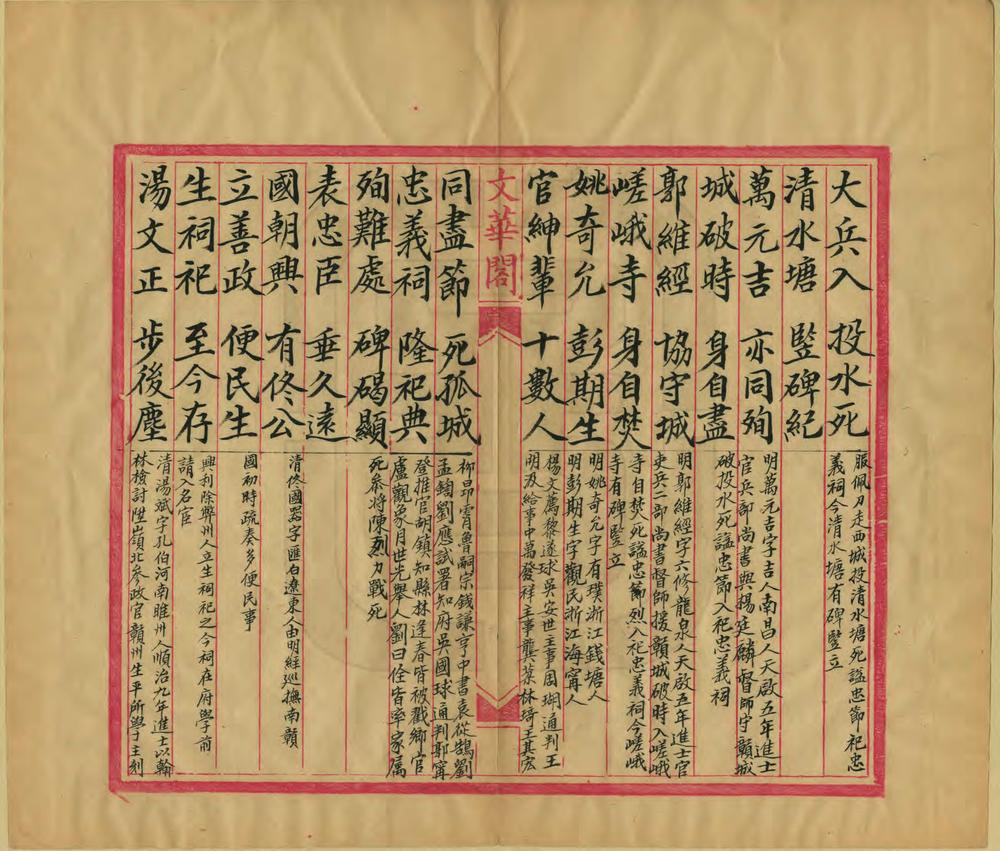 大兵入　投水死
服佩刀走西城投清水塘死諡忠節祀忠
義祠今清水塘有碑豎立
清水塘　豎碑紀
萬元吉　亦同殉
明萬元吉字吉人南昌人天啟五年進士
官兵部尚書與楊廷麟督師守贛城
城破時　身自盡
破投水死諡忠節入祀忠義祠
郭維經　協守城
明郭維經字六修龍泉人天啟五年進士官
吏兵二部尚書督師援贛城破時入嵯峨
嵯峨寺　身自焚
寺自焚死諡忠節烈入祀忠義祠今嵯峨
寺有碑豎立
姚奇允　彭期生
明姚奇允字有璞浙江錢塘人
明彭期生字觀民浙江海寧人
官紳輩　十數人
楊文薦黎遂球吳安世主事周瑚通判王
明汲給事中萬發祥主事龔棻林琦王其宖
文華閣
同盡節　死孤城
柳昂霄魯嗣宗錢謙亨中書袁從鶚劉
孟鍧劉應試署知府吳國球通判郭寧
忠義祠　隆祀典
登推官胡縝知縣林逢春皆被戮鄉官
盧觀象月世光舉人劉曰佺皆率家屬
殉難處　碑碣顯
死叅將陳烈力戰死
表忠臣　垂久遠
國朝興　有佟公
清佟國器字匯白遼東人由明經巡撫南贛
立善政　便民生
國初時疏奏多便民事
生祠祀　至今存
興利除弊州人立生祠祀之今祠在府學前
請入名宦
湯文正　步後塵
清湯斌字孔伯河南睢州人順治九年進士以翰
林檢討陞嶺北參政官贛州生平所學主刻